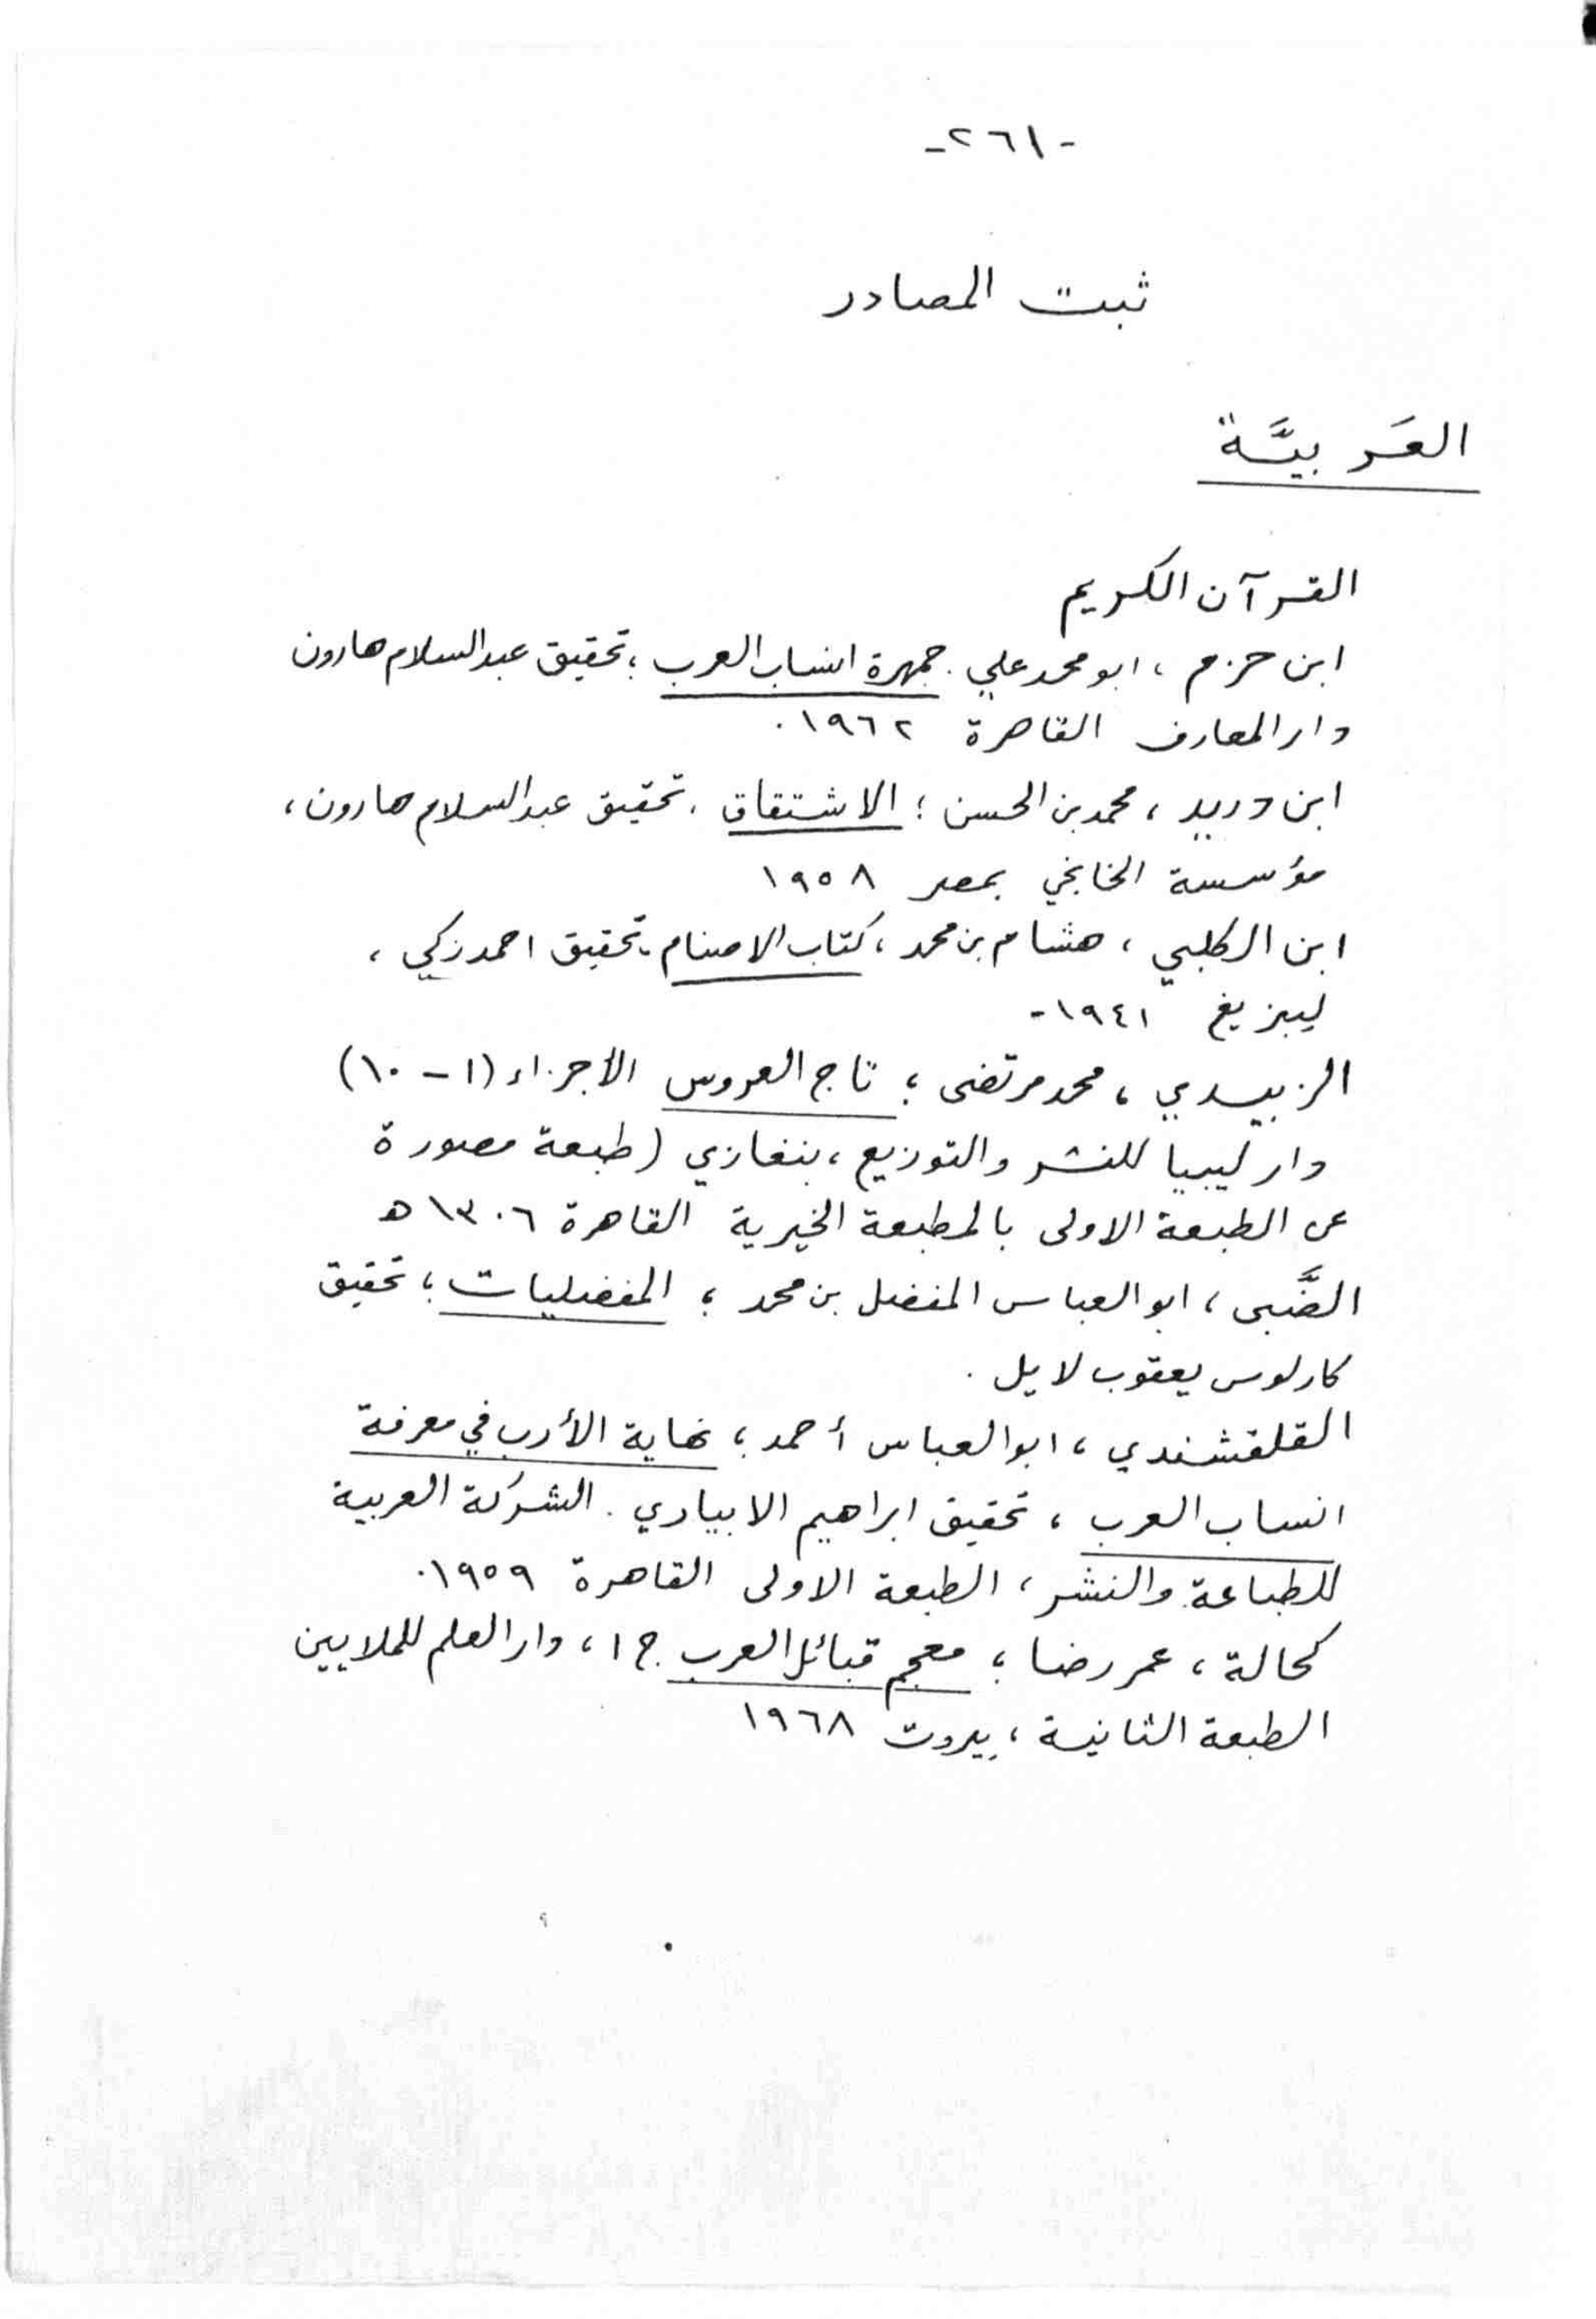 -٢٦١-
ثبت المصادر
العَربيَّة
القرآن الكريم
ابن حزم ، ابو محمد علي . جمهرة انساب العرب ؛ تحقيق عبد السلام هارون
دار المعارف القاهرة ١٩٦٢ .
ابن دريد ، محمد بن الحسن ؛ الاشتقاق . تحقيق عبد السلام هارون ،
مؤسسة الخانجي بمصر ١٩٥٨
ابن الكلبي ، هشام بن محمد ، كتاب الاصنام . تحقيق احمد زكي ،
ليبزيغ ١٩٤١ -
الزبيدي ، محمد مرتضى ؛ تاج العروس الأجزاء (١ - ١٠)
دار ليبيا للنشر والتوزيع ، بنغازي (طبعة مصورة
عن الطبعة الاولى بالمطبعة الخيرية القاهرة ١٣٠٦ ه
الضَّبى ، ابو العباس المفضل بن محمد ؛ المفضليات ؛ تحقيق
كارلوس يعقوب لايل .
القلقشندي ، ابو العباس أحمد ؛ نهاية الأرب في معرفة
انساب العرب ، تحقيق ابراهيم الابياري . الشركة العربية
للطباعة والنشر ، الطبعة الاولى القاهرة ١٩٥٩ .
كحالة ، عمر رضا ؛ معجم قبائل العرب ج ١ ، دار العلم للملايين
الطبعة الثانية ، بيروت ١٩٦٨